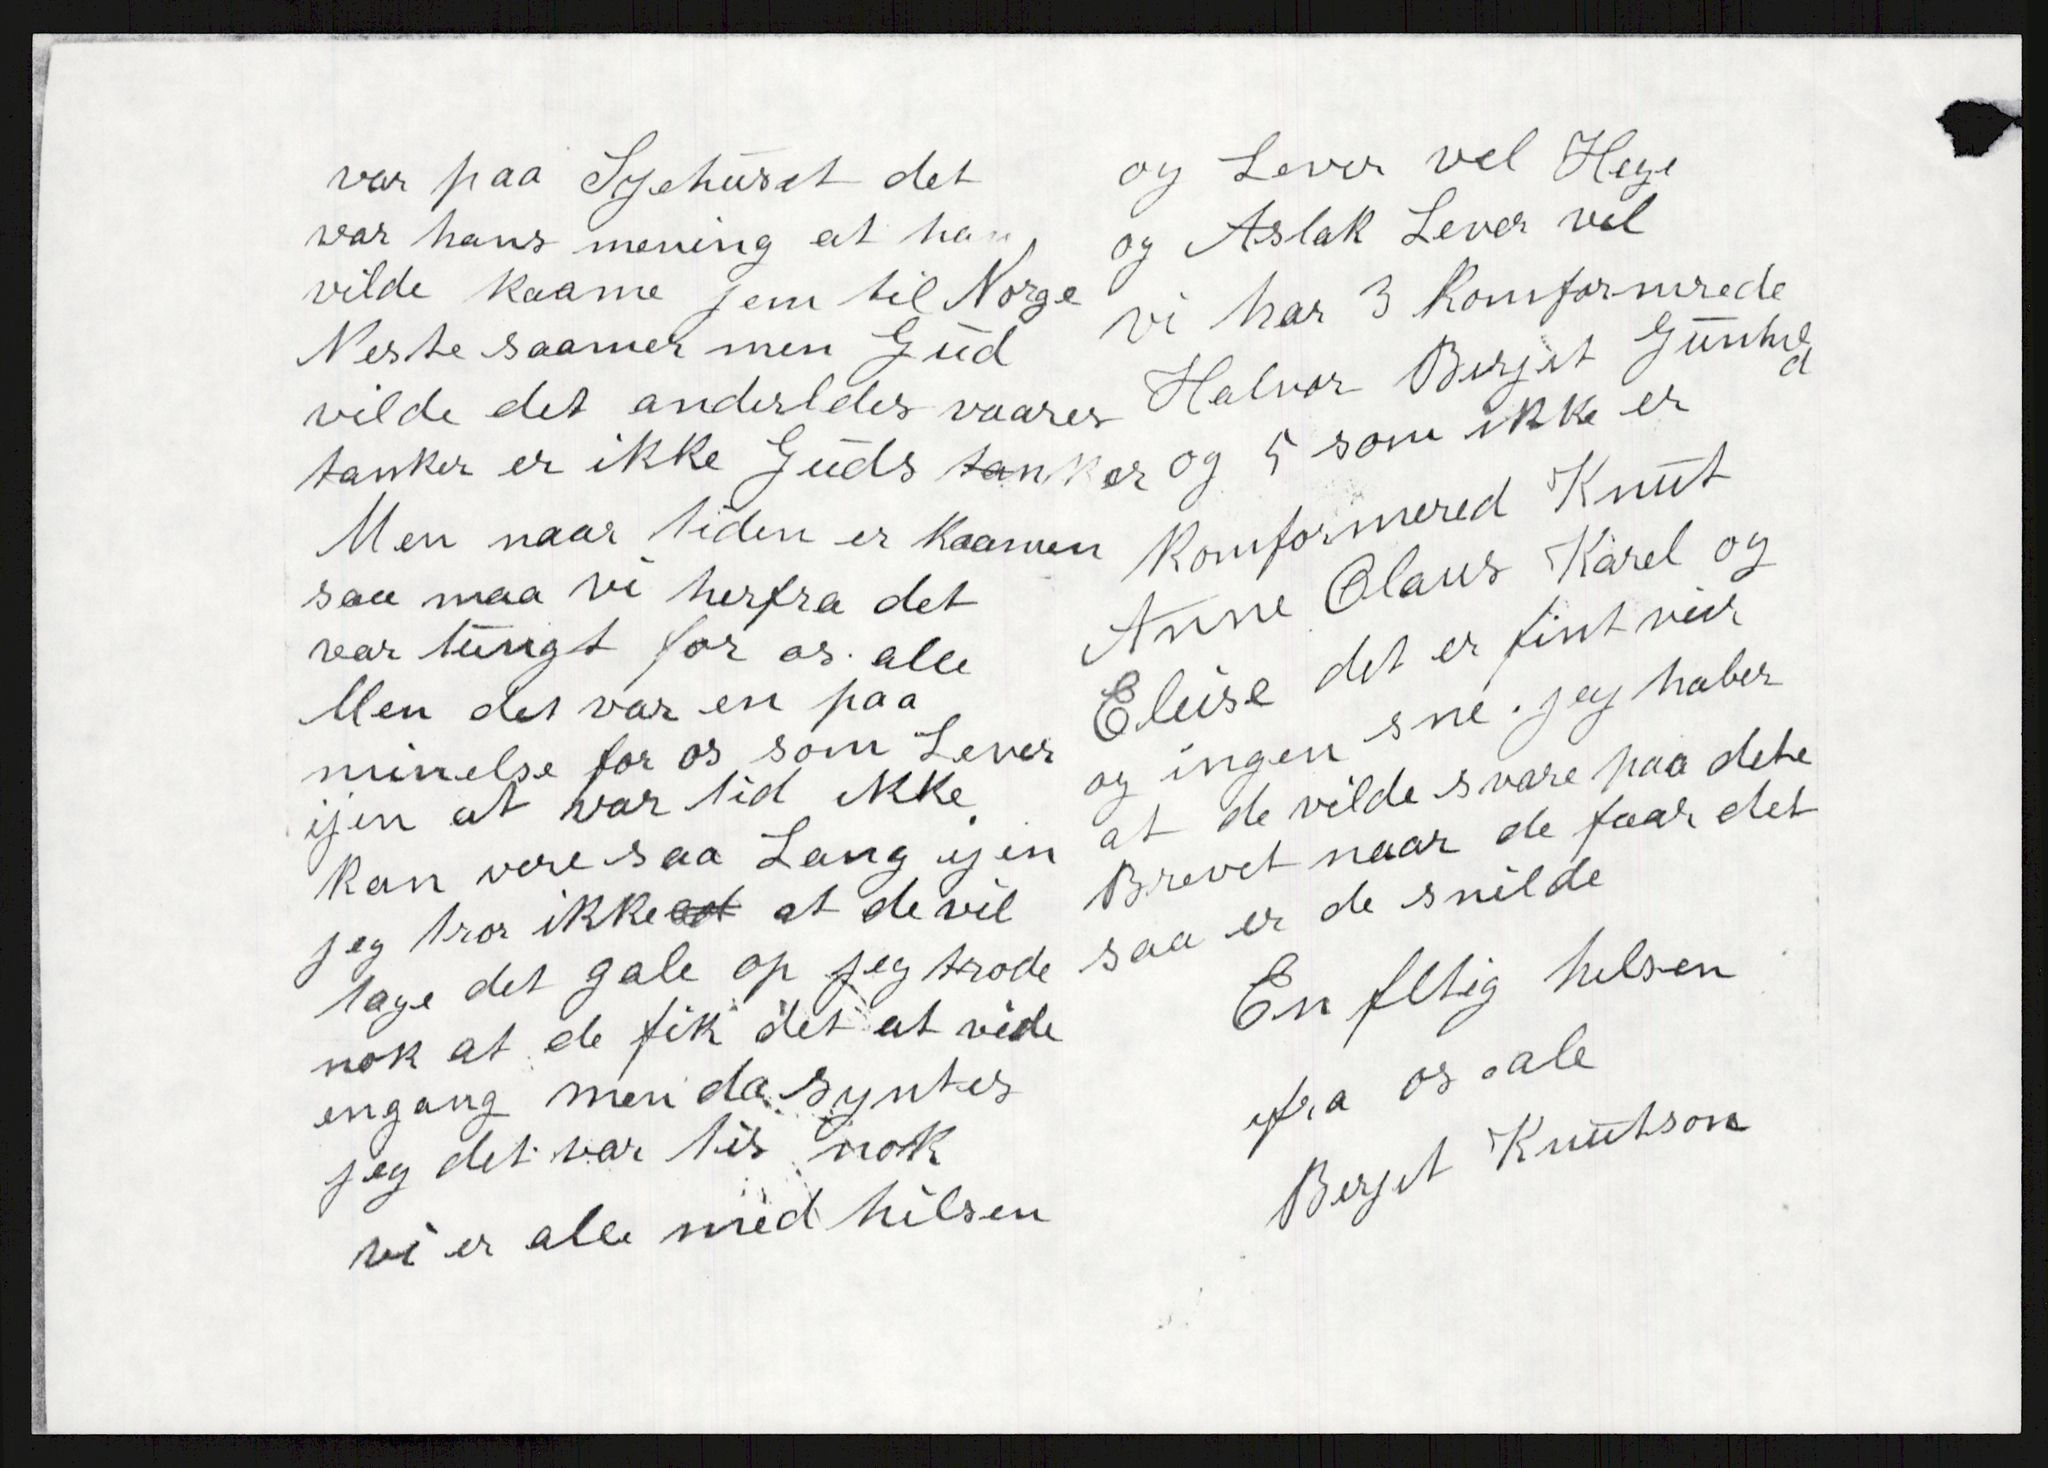 var paa Syehuset det
var hans mening at han
vilde kaame jem til Norge
Neste saamer men Gud
vilde det anderldes vaares
tanker er ikke Guds tanker
Men naar tiden er kaamen
saa maa vi herfra det
var tungt for os alle
Men det var en paa
minelse for os som Lever
ijen at vor tid ikke
kan vere saa Lang ijen
jeg tror ikke at de vil
tage det gale op jeg trode
nok at de fik det at vide
engang men da syntes
jeg det var tis nok
vi er alle med hilsen
og Lever vel Hege
og Aslak Lever vel
vi har 3 Komformrede
Halvor Berjet Gunhild
og 5 som ikke er
Komformered Knut
Anne Olaus Karel og
Eleise det er fint veir
og ingen sne. jeg haber
at de vilde svare paa dete
Brevet naar de faar det
saa er de snilde
En fltig helsen
fra os ale
Berjet Knutson